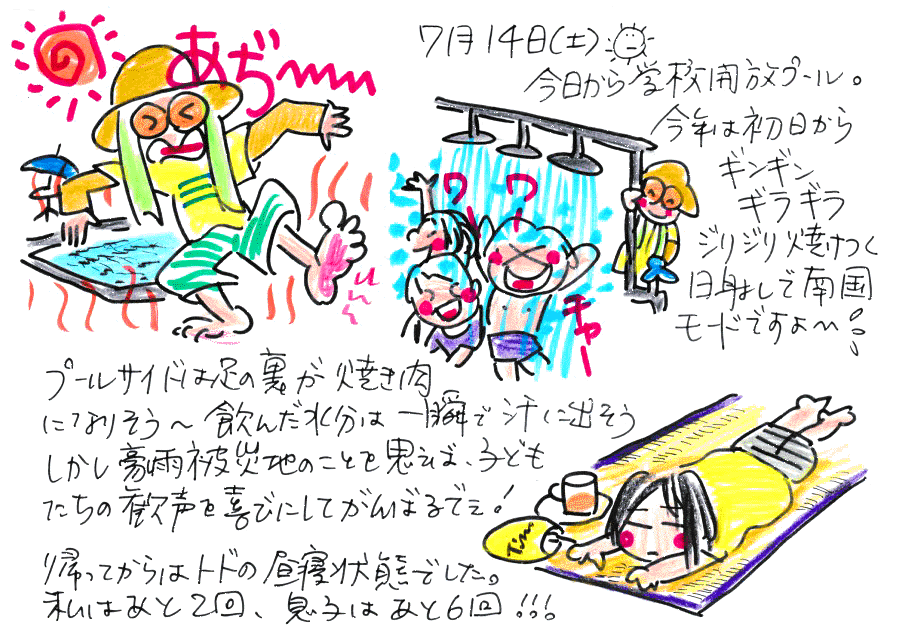 7月14日(土)
今日から学校開放プール。
今年は初日から
ギンギン
ギラギラ
ジリジリ焼けつく
日射しで南国
モードですよ〜!!
あぢ〜
ワー
ワー
キャー
プールサイドは足の裏が焼き肉
になりそう〜飲んだ水分は一瞬で汗に出そう
しかし豪雨被災地のことを思えば、子ども
たちの歓声を喜びにしてがんばるでェ!
帰ってからはトドの昼寝状態でした。
私はあと2回、息子はあと6回!!!